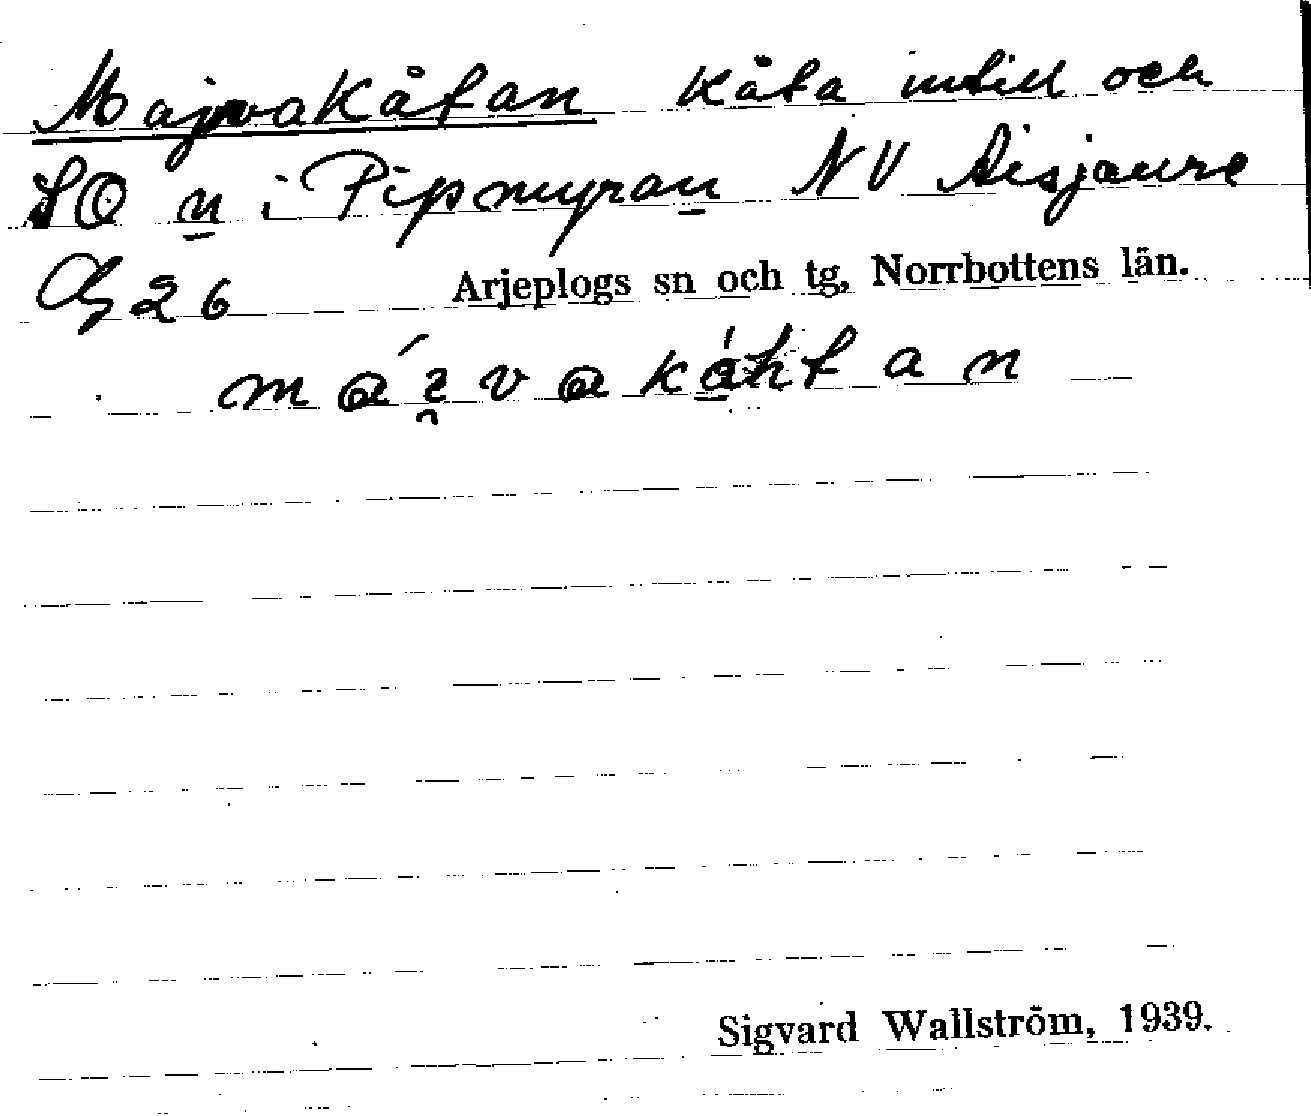 Majvakåtan kåta intill och
SO n i Pipmyran NV Aisjaure
Cg 26 Arjeplogs sn och tg, Norrbottens län.
Sigvard Wallström, 1939.